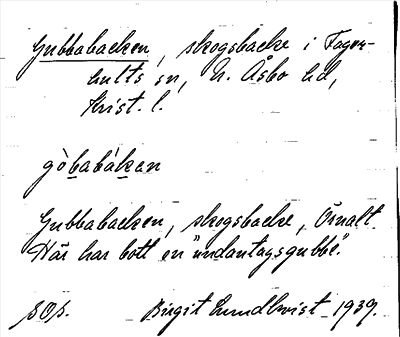 Gubbabacken, skogsbacke i Fager-
hults sn, N. Åsbo hd,
Krist. l.
gòbabákan
Gubbabacken, skogsbacke, Örnalt.
Här har bott en "undantagsgubbe".
sOp. Birgit Lundkvist 1939.